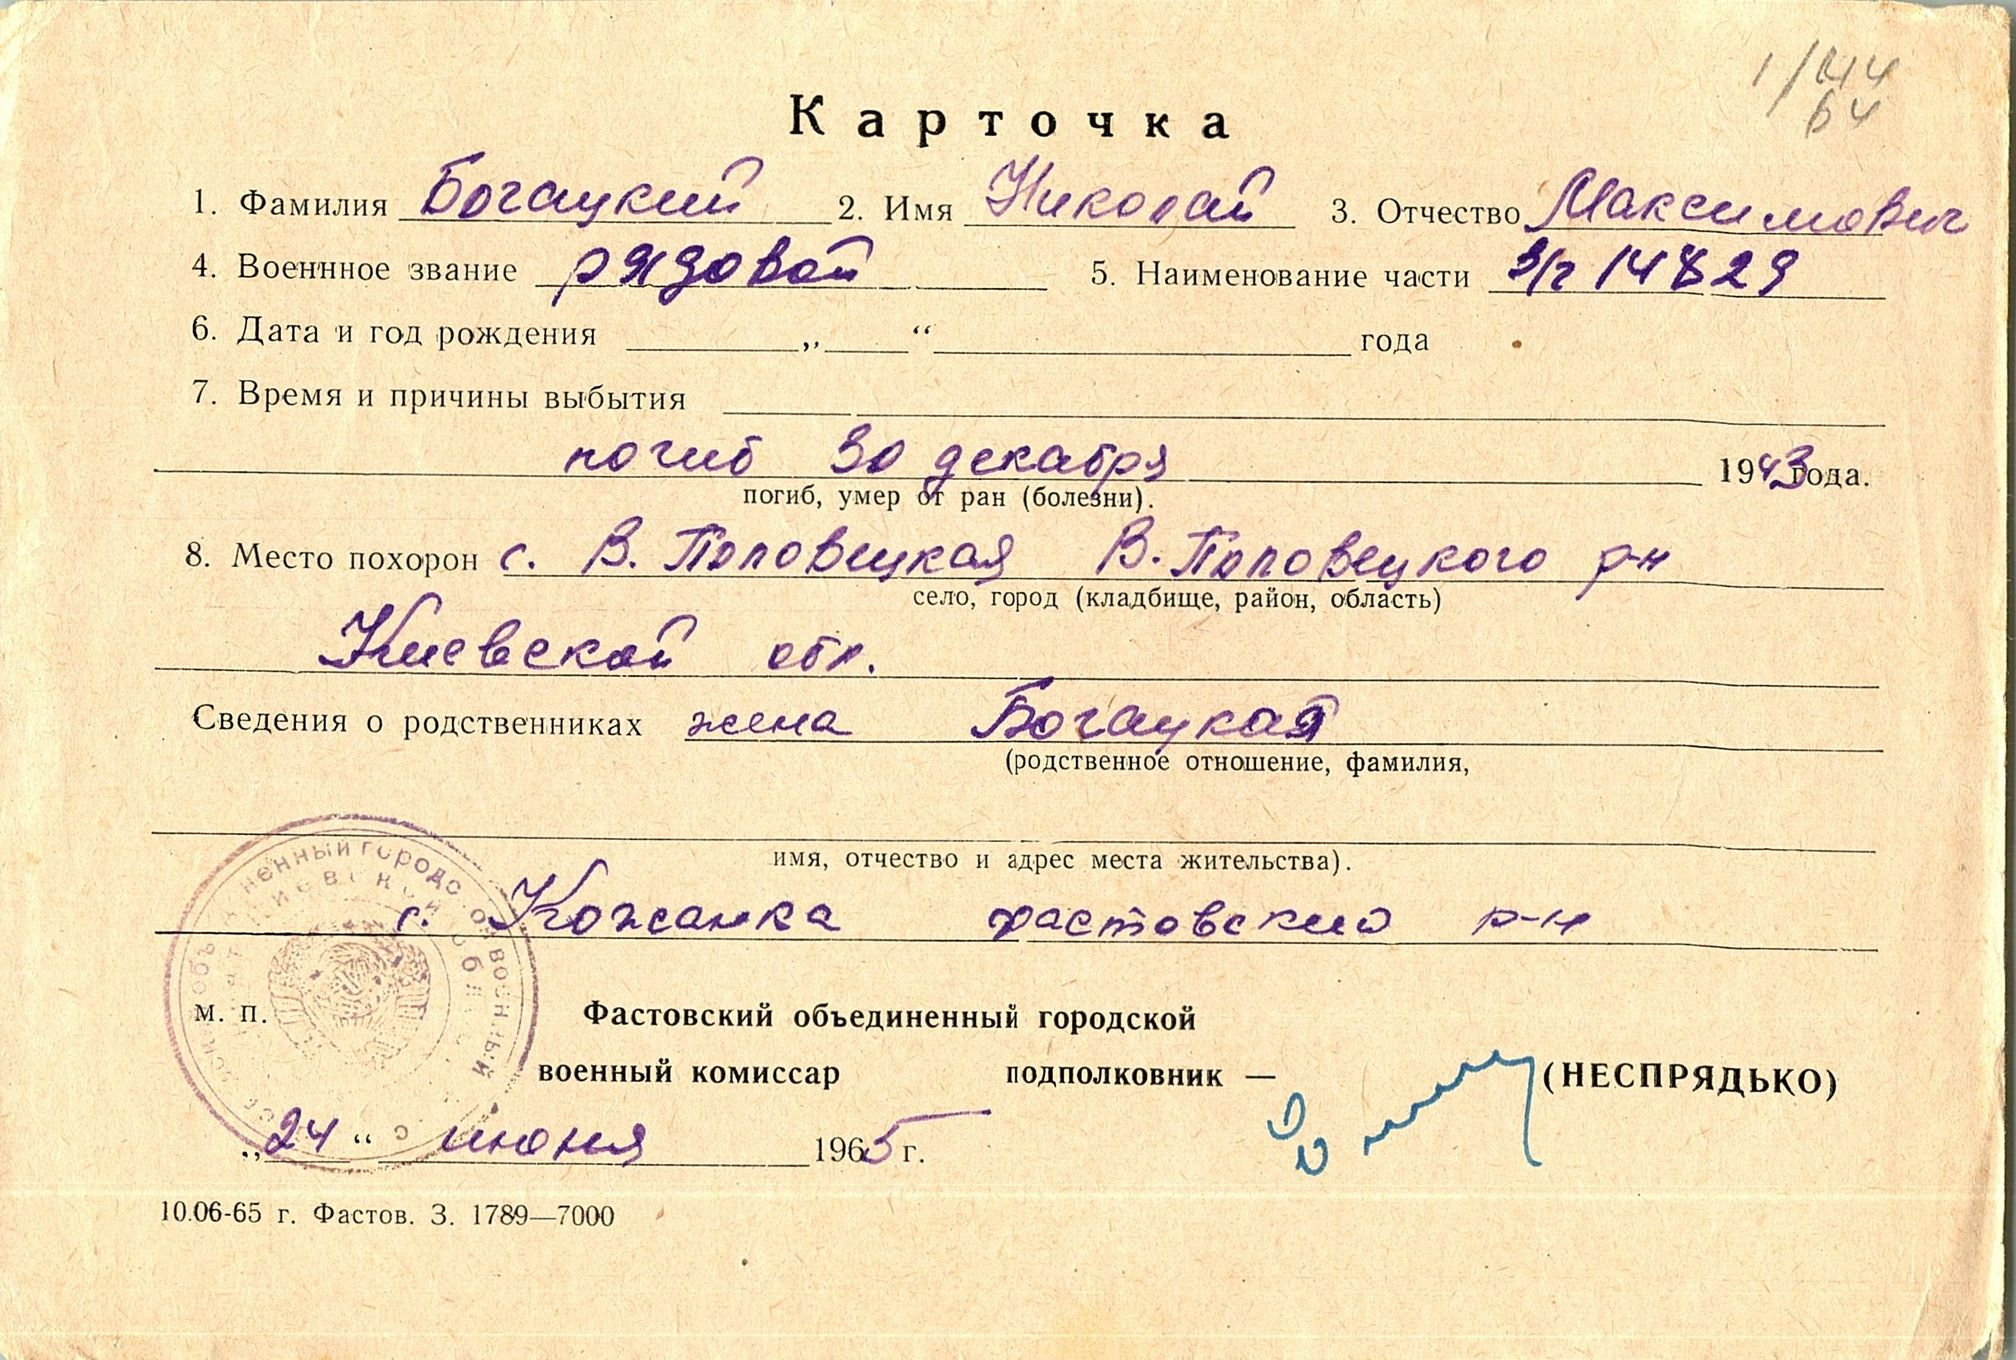 1/144
64
Карточка
1. Фамилия Богацкий 2. Имя Николай 3. Отчество Максимович
4. Военнное звание рядовой 5. Наименование части в/ч 14829
6. Дата и год рождения „ “ года
7. Время и причины выбытия
погиб 30 декабря 1943 года.
погиб, умер от ран (болезни).
8. Место похорон с. В. Половецкая В. Половецкого р-н
село, город (кладбище, район, область)
Киевской обл.
Сведения о родственниках жена Богацкая
(родственное отношение, фамилия,
имя, отчество и адрес места жительства).
с. Кожанка фастовского р-н
м. п. Фастовский объединенный городской
военный комиссар подполковник — (НЕСПРЯДЬКО)
„24“ июня 1965 г.
10.06-65 г. Фастов. З. 1789—7000